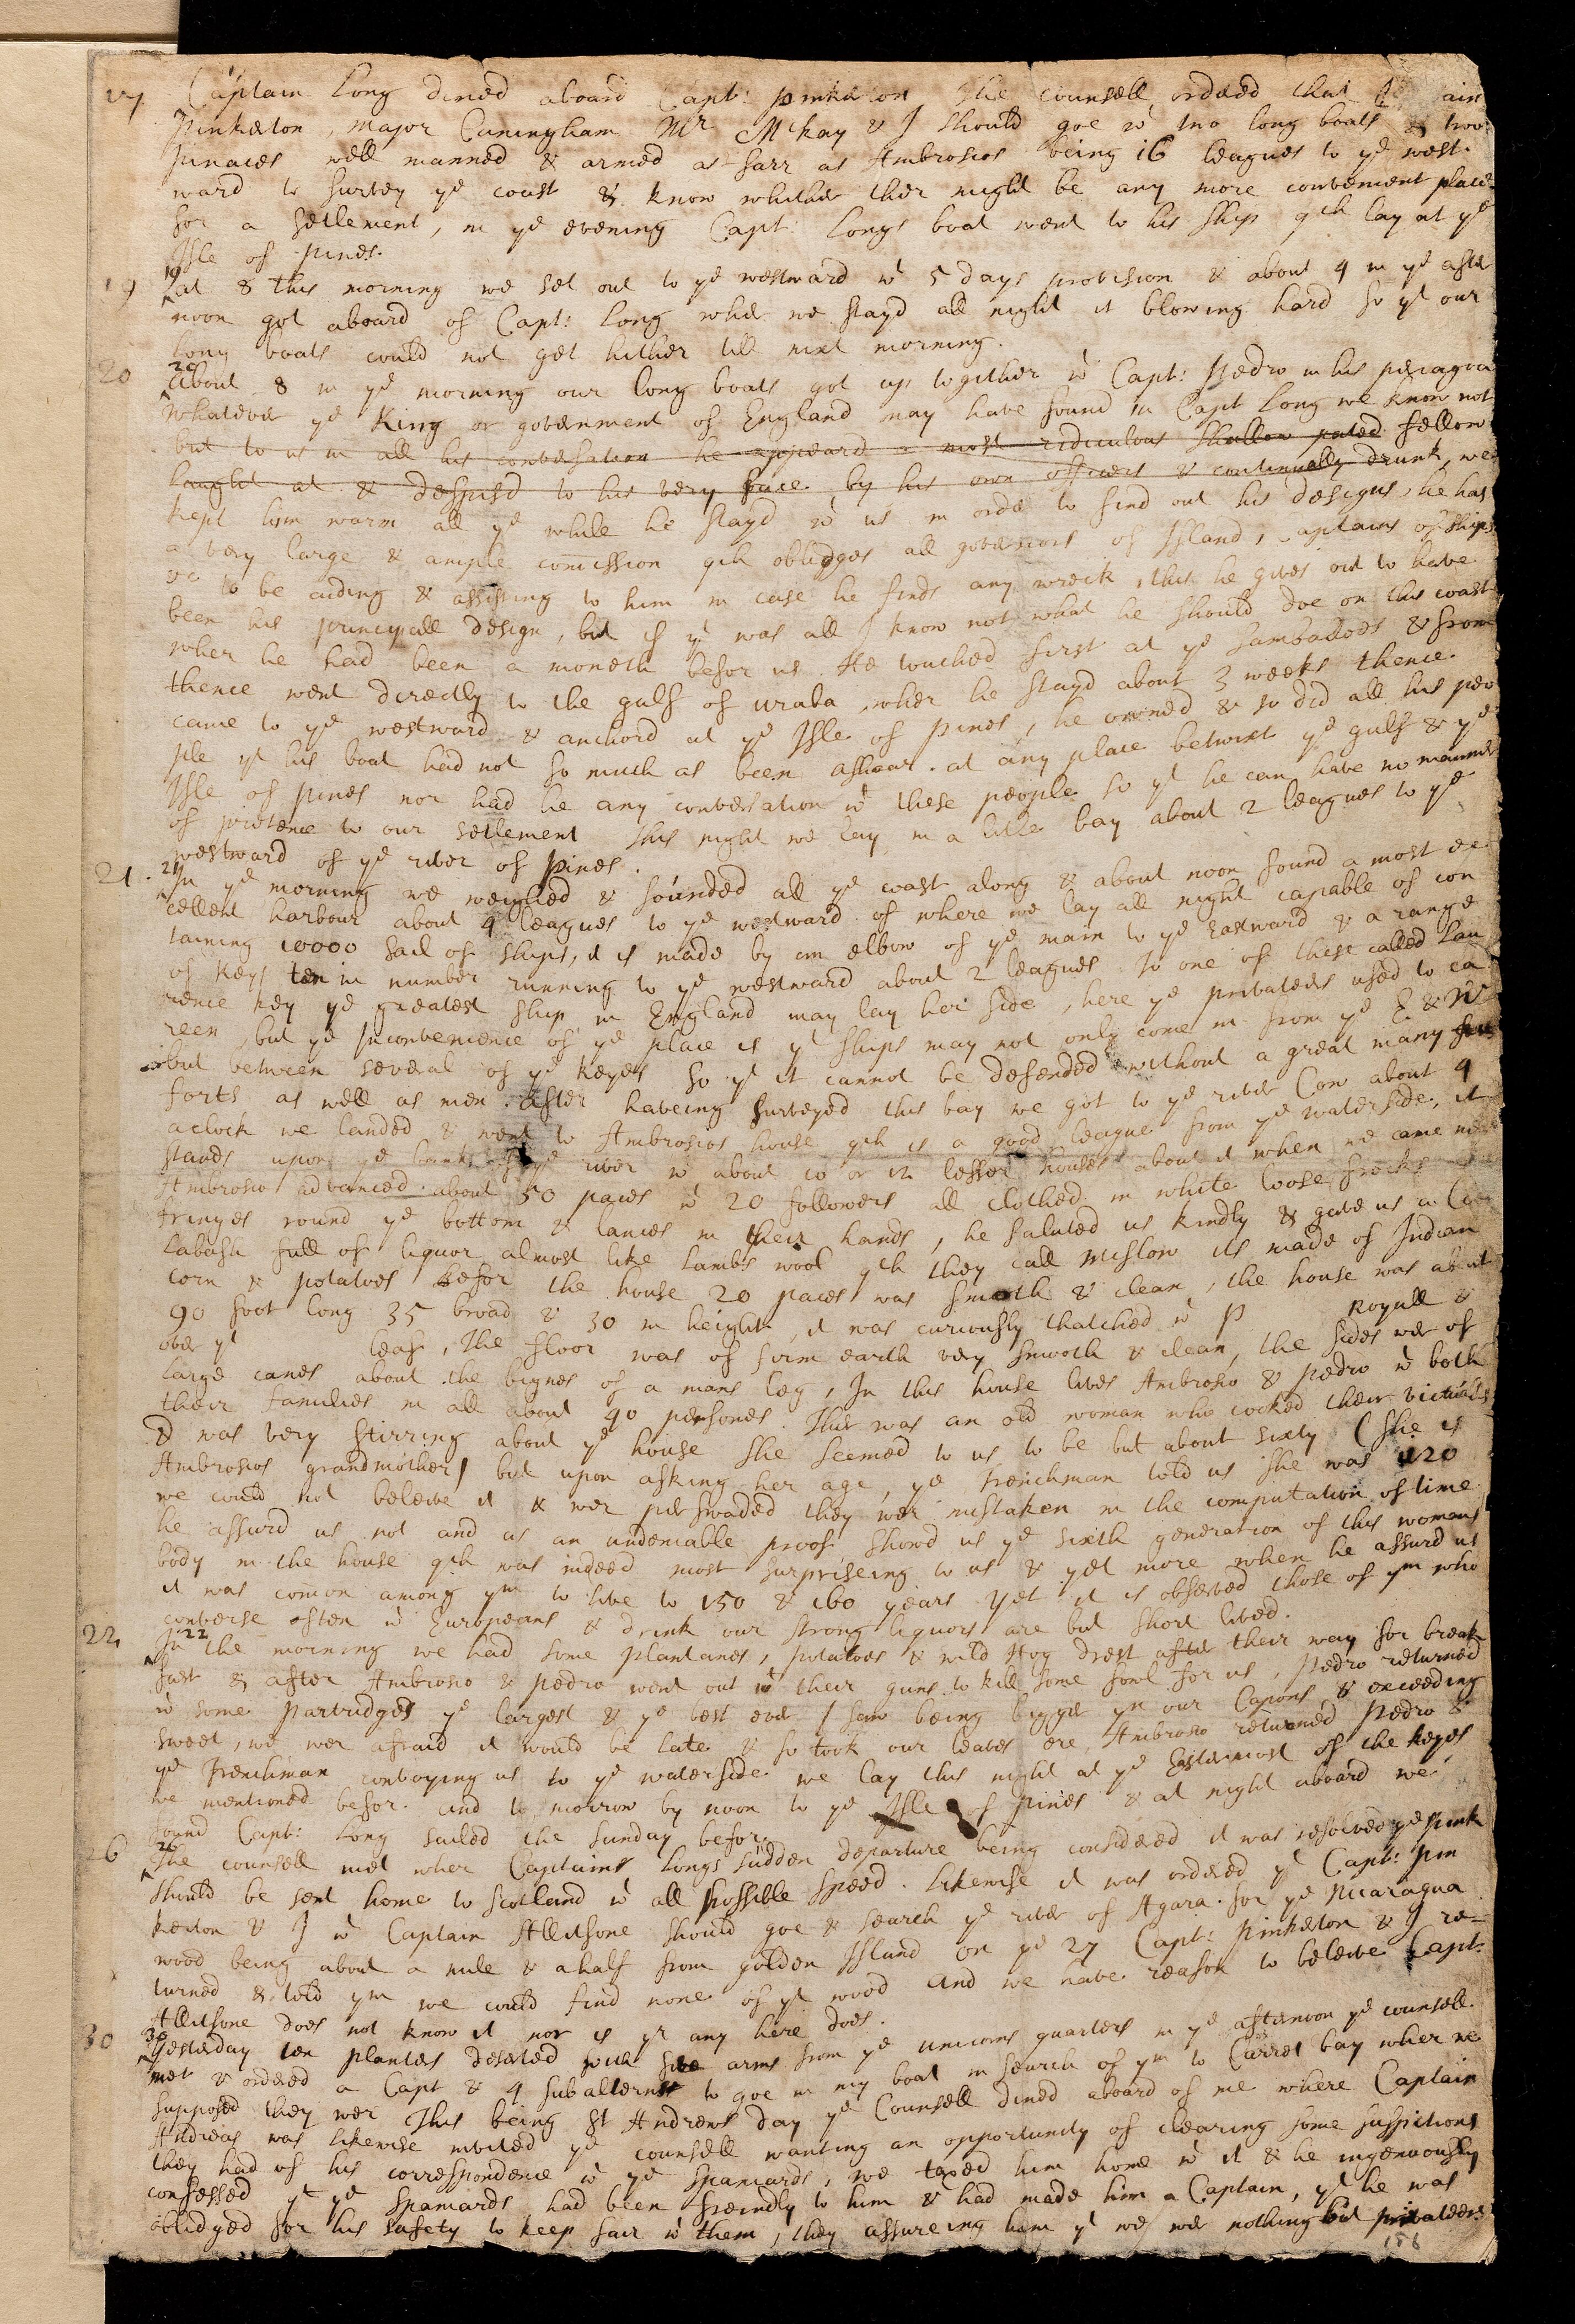 17 Captain Long dined aboard Capt: Pinkerton The Counsell ordered that ain
Pinkerton, Major Cuningham Mr Mckay & I should goe wt two long boats & two
pinaces well manned & armed as farr as Ambrosios being 16 leagues to ye west-
ward to survey ye coast & know whither ther might be any more convenient place
for a setlement, in ye evening Capt: Longs boat went to his ship qch lay at ye
Isle of pines.
19 19 at 8 this morning we set out to ye westward wt 5 days provision & about 4 in ye after
noon got aboard of Capt: Long wher we stayd all night it blowing hard so yt our
long boats could not get hither till next morning.
20 20 About 8 in ye morning our long boats got up together wt Capt: Pedro in his periagoa
whatever ye King or government of England may have found in Capt Long we know not
but to us in all his conversation he appeard a most ridiculous shallow pated fellow
laught at & despisd to his very face by his own officers & continually drunk, we
kept him warm all ye while he stayd wt us in order to find out his designs, he has
a very large & ample comission qch obliges all governors of Island, captains of ships
&c to be aiding & assisting to him in case he finds any wreck, this he gives out to have
been his principall design, but if yt was all I know not what he should doe on this coast
wher he had been a moneth befor us. He touched first at ye Sambaloes & from
thence went directly to the gulf of Uraba, wher he stayd about 3 weeks thence
came to ye westward & anchord at ye Isle of pines, he owned & so did all his peo
ple yt his boat had not so much as been ashoar at any place betwixt ye gulf & ye
Isle of pines nor had he any conversation wt these people so yt he can have no manner
of pretence to our setlement This night we lay in a litle bay about 2 leagues to ye
westward of ye river of pines.
21. 21 In ye morning we weighed & sounded all ye coast along & about noon found a most ex
cellent harbour about 4 leagues to ye westward of where we lay all night capable of con
taining 10000 sail of ships, it is made by an elbow of ye main to ye Eastward & a range
of Keys ten in number running to ye westward about 2 leagues to one of these called Lau
rence key ye greatest ship in England may lay her side, here ye privateers used to ca
reen, but ye Inconvenience of ye place is yt ships may not only come in from ye E & W
but between several of ye keyes so yt it cannot be defended without a great many
forts as well as men. After haveing surveyed this bay we got to ye river Com about 4
aclock we landed & went to Ambrosios house qch is a good league from ye waterside, it
stands upon ye bank of ye river wt about 10 or 12 lesser houses about it when we came near
Ambrosio advanced about 50 paces wt 20 followers all clothed in white loose frocks
fringes round ye bottom & lances in their hands, he saluted us kindly & gave us a Ca
labash full of liquor almost like lambs wool qch they call Mislow its made of Indian
corn & potatoes Befor the house 20 paces was smooth & clean, the house was about
90 foot long 35 broad & 30 in height, it was curiously thatched wt P Royall &
over yt leaf, The floor was of firm earth very smooth & clean, the sides wer of
large canes about the bignes of a mans leg, In this house lives Ambrosio & Pedro wt both
their families in all about 40 persones. Ther was an old woman who cocked their victuals
& was very stirring about ye house she seemed to us to be but about sixty (she is
Ambrosios grandmother) but upon asking her age, ye Frenchman told us she was 120
we could not beleive it & wer perswaded they wer mistaken in the computation of time
he assurd us not and as an undeniable proof shewd us ye sixth generation of this womans
body in the house qch was indeed most surpriseing to us & yet more when he assurd us
it was comon among ym to live to 150 & 160 years yet it is observed those of ym who
converse often wt Europeans & drink our strong liquors are but short lived.
22 22 In the morning we had some plantanes, potatoes & wild Hog drest after their way for break
fast & after Ambrosio & Pedro went out wt their guns to kill some fowl for us, Pedro returned
wt some Partridges ye largest & ye best ever I saw being bigger yn our Capons, & exceeding
sweet, we wer afraid it would be late & so took our leaves ere Ambrosio returned Pedro &
ye Frenchman convoying us to ye waterside we lay this night at ye Eastermost of the keyes
we mentioned befor. And to morrow by noon to ye Isle of pines & at night aboard we
found Capt: Long sailed the sunday befor.
26 26 The counsell met wher Captains Longs sudden departure being considered it was resolved ye pink
should be sent home to Scotland wt all possible speed. Likewise it was ordered yt Capt: Pin
kerton & I wt Captain Allitsone should goe & search ye river of Agara for ye Nicaragua
wood being about a mile & a half from golden Island On ye 27 Capt: Pinkerton & I re-
turned & told ym we could find none of yt wood and we have reason to beleive Capt:
Allitsone does not know it nor is yr any here does.
30 30 Yesterday ten planters deserted with arms from ye unicorns quarters in ye afternoon ye counsell
met & ordered a Capt & 4 subalterns to goe in my boat in search of ym to Carret bay wher we
supposed they wer This being St Andrews day ye Counsell dined aboard of me where Captain
Andreas was likewise invited ye counsell wanting an opportunity of clearing some suspitions
they had of his correspondence wt ye Spaniards, we taxed him home wt it & he ingenuously
confessed yt ye Spaniards had been freindly to him & had made him a Captain, yt he was
oblidged for his safety to keep fair wt them, they assureing him yt we wer nothing but privateers
156